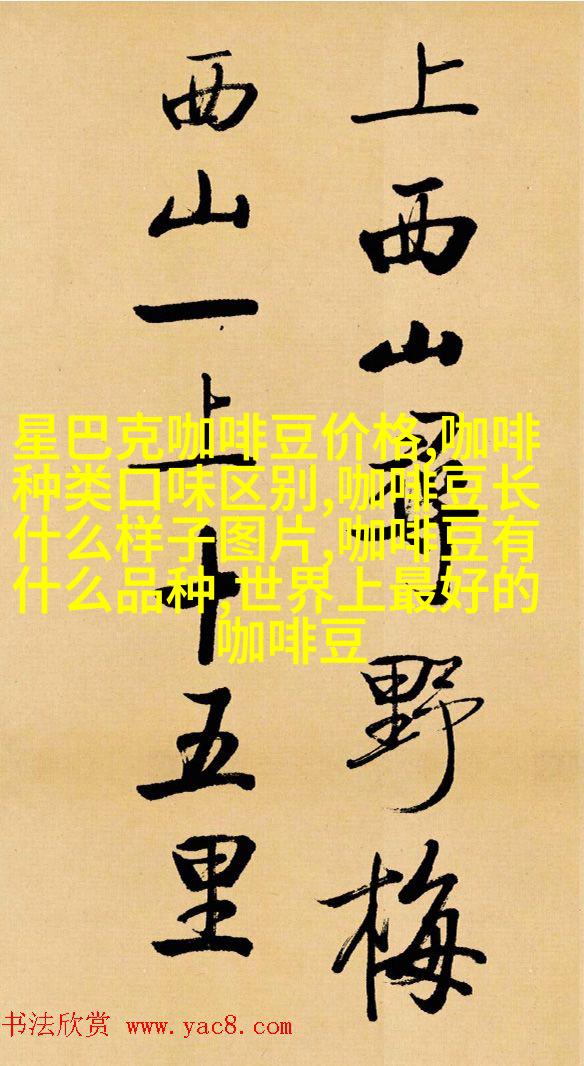 上西山 野梅
西山一上十五里
星巴克咖啡豆价格,咖啡
种类口味区别,咖啡豆长
什么样子图片,咖啡豆有
什么品种,世界上最好的
咖啡豆
书法欣赏 www.yac8.com